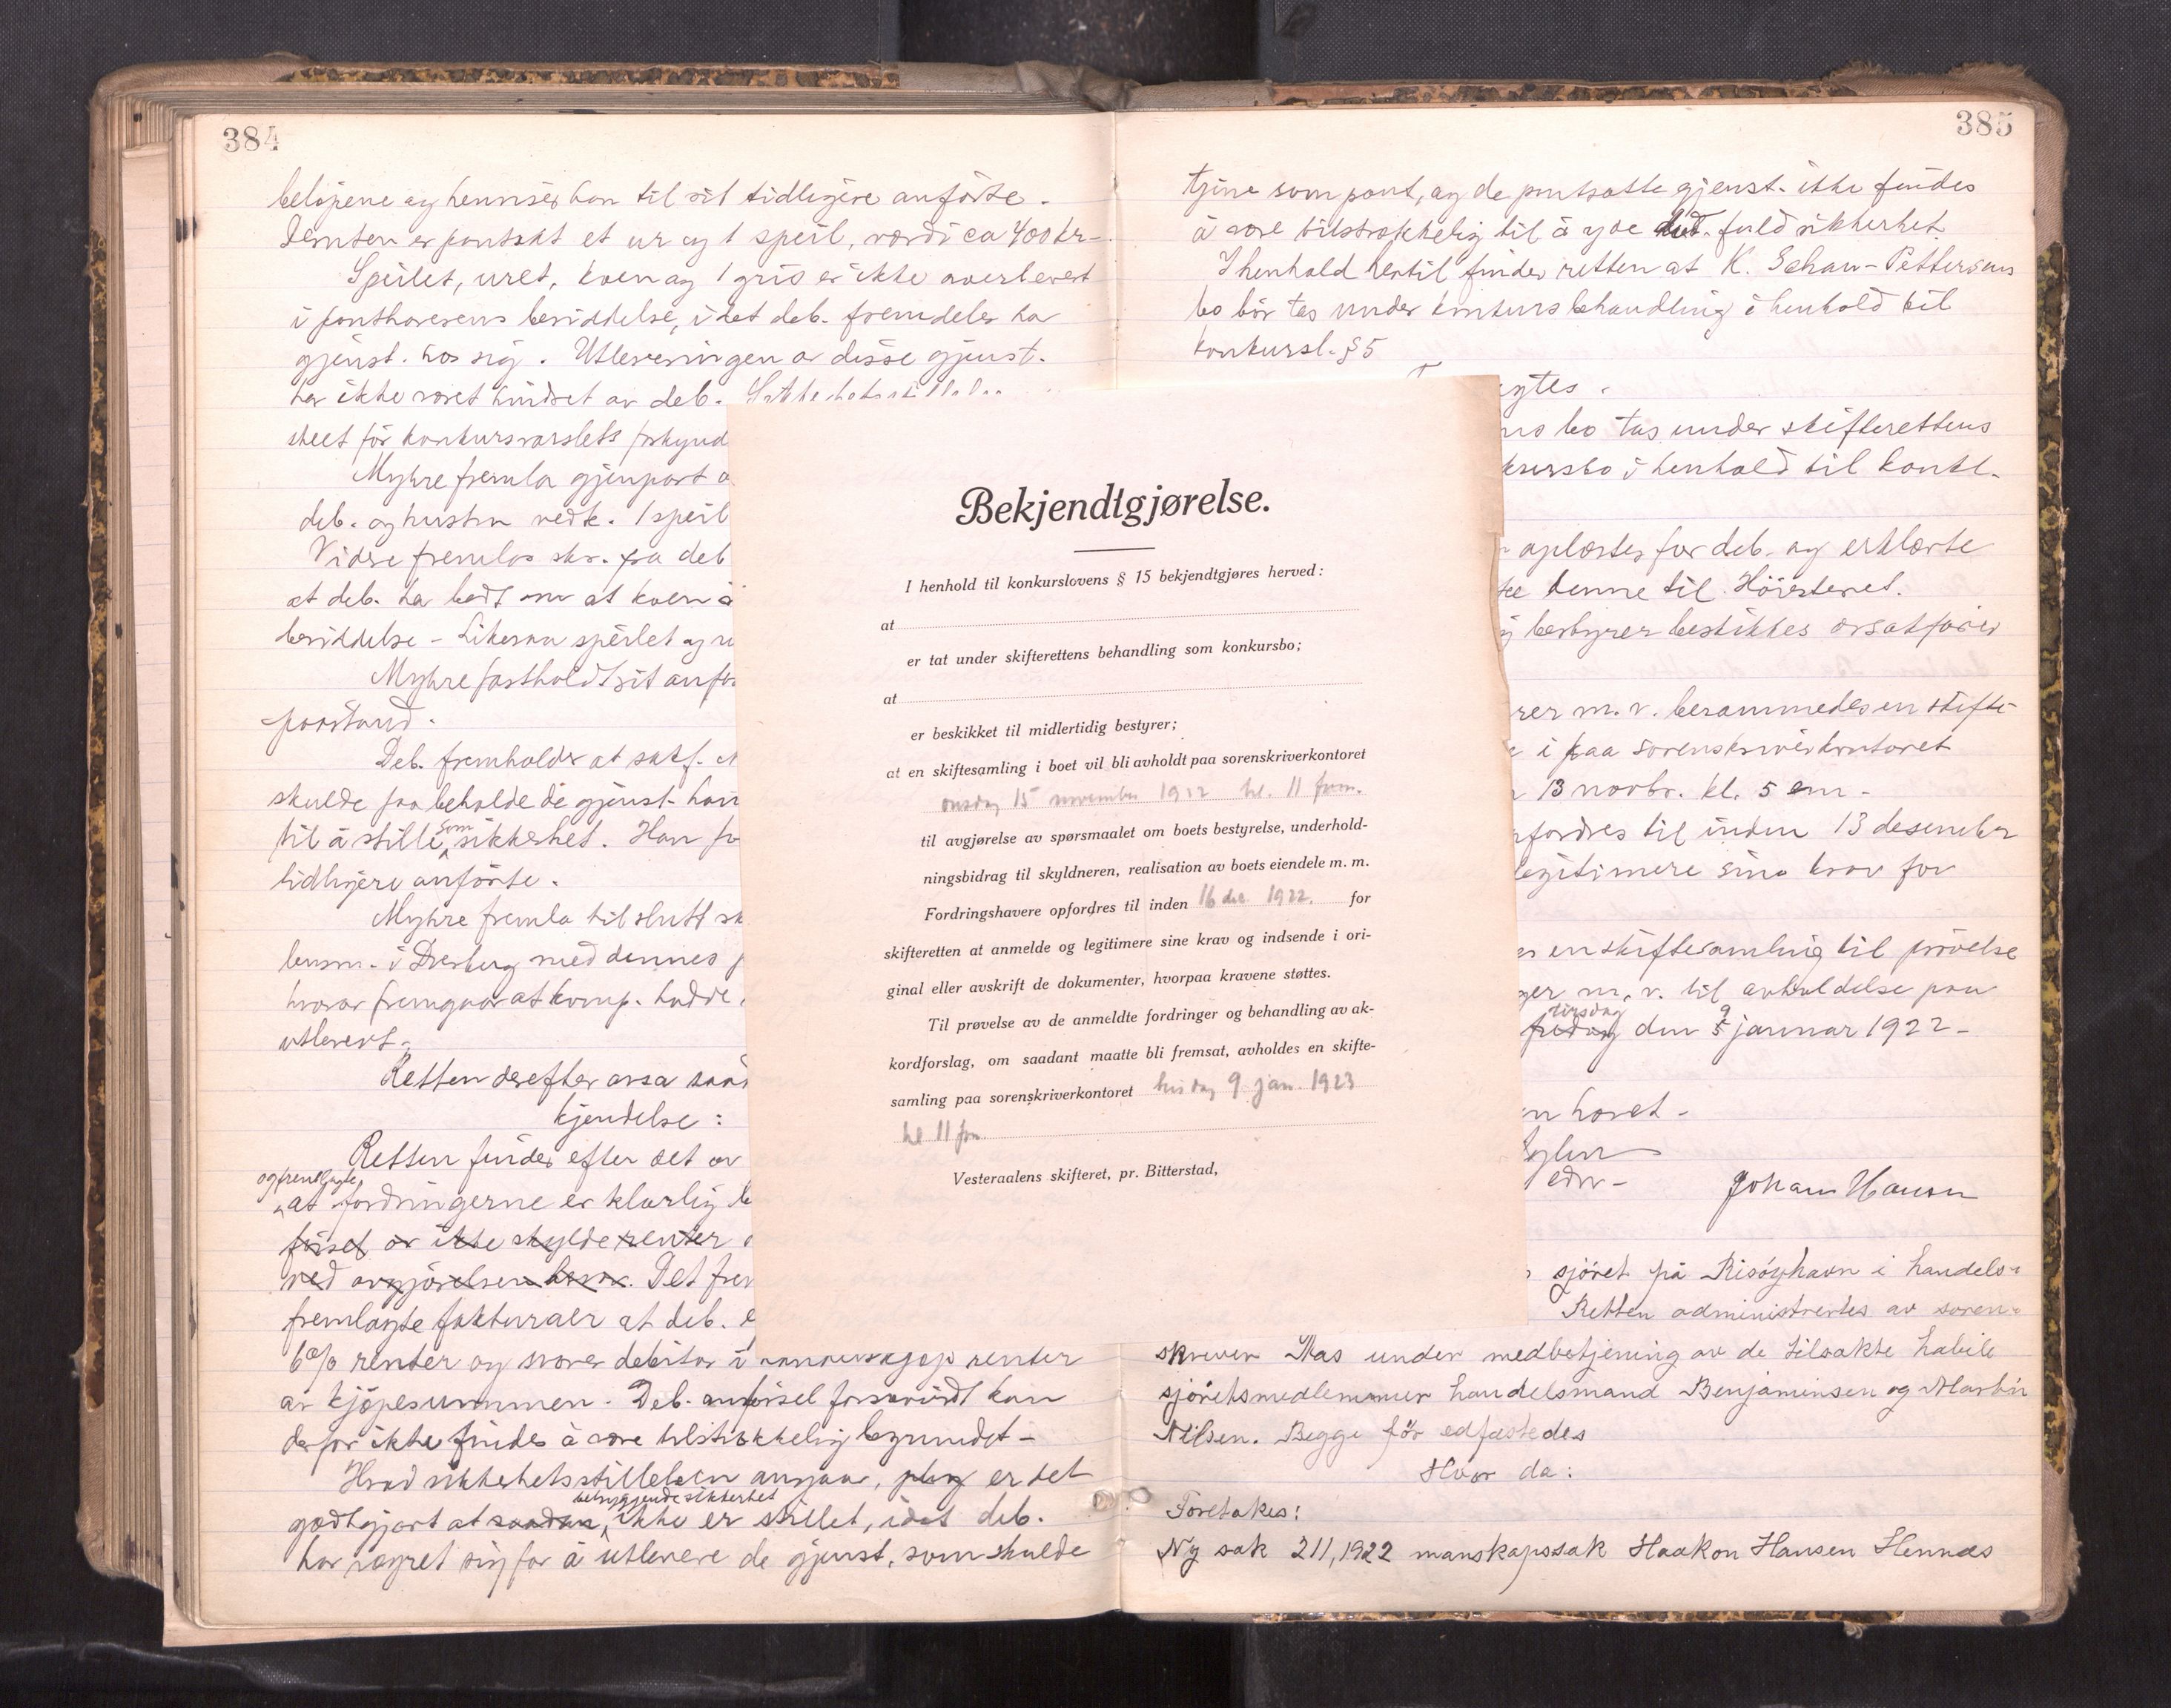 384
beløpene og henviser han til sit tidligere anførte.
Desuten er pantsat et ur og 1 speil, værdi ca 400 kr-
Speilet, uret, koen og 1 gris er ikke overlevert
i panthaverens besiddelse, idet deb. fremdeles har
gjenst. hos sig. Utleveringen av disse gjenst.
har ikke været hindret av deb.
skeet før konkursvarslets forkynd
Myhre fremla gjenpart a
deb. og hustru vedk. 1 speil
Videre fremlas skr. fra deb
at deb. ha bedt om at koen
besiddelse - Likesaa speilet og
Myhre fastholdt sit anfø
paastand.
Deb. fremholder at sakf.
skulde faa beholde de gjenst. han
til å stille som sikkerhet. Han
tidligere anførte.
Myhre fremla til slutt sk
lensm. i Dverberg med dennes
hvorav fremgaar at komp. hadde
utlevert.
Retten derefter avsa saad
kjendelse:
Retten finder efter det
og fremlagte
at fordringerne er klarlig
ørsel er ikke skylde renter
ved avgjørelsen herav. Det frem
fremlagte fakturaer at deb.
6% renter og svarer debitor i renter
av kjøpesummen. Deb. anførsel forsaavidt kan
derfor ikke findes å være tilstrækkelig begrundet -
Hvad sikkerhetsstillelsen angaar, er det
betryggende sikkerhet
godtgjort at saadan ikke er stillet, idet deb.
har vægret sig for å utlevere de gjenst. som skulde
385
tjene som pant, og de pantsatte gjenst. ikke findes
å være tilstrækkelig til å yde fuld sikkerhet
I henhold hertil finder retten at K. Schau-Pettersens
bo bør tas under konkursbehandling i henhold til
konkursl. § 5
gtes.
ns bo tas under skifterettens
kursbo i henhold til konkl.
oplæstes for deb. og erklærte
denne til Høiesteret.
bestyrer beskikkes overretssakfører
rer m.v. berammedes en skifte-
i paa sorenskriverkontoret
13 novbr. kl. 5 em -
fordres til inden 13 desember
legitimere sine krav for
es en skiftesamling til prøvelse
ger m.v. til avholdelse paa
tirsdag 9
fredag den 5 januar 1922 -
en hævet -
edsv-
Johan Hansen
sjøret på Risøyhavn i handels-
Retten administrertes av soren-
skriver Mas under medbetjening av de tilsakte habile
sjøretsmedlemmer handelsmand Benjaminsen og Martin
Nilsen. Begge før edfæstedes
Hvor da:
Foretokes:
Ny sak 211, 1922 manskapssak Haakon Hansen Hennes
Bekjendtgjørelse.
I henhold til konkurslovens § 15 bekjendtgjøres herved:
at
er tat under skifterettens behandling som konkursbo;
at
er beskikket til midlertidig bestyrer;
at en skiftesamling i boet vil bli avholdt paa sorenskriverkontoret
onsdag 15 november 1922 kl. 11 form.
til avgjørelse av spørsmaalet om boets bestyrelse, underhold-
ningsbidrag til skyldneren, realisation av boets eiendele m. m.
Fordringshavere opfordres til inden 16 des. 1922. for
skifteretten at anmelde og legitimere sine krav og indsende i ori-
ginal eller avskrift de dokumenter, hvorpaa kravene støttes.
Til prøvelse av de anmeldte fordringer og behandling av ak-
kordforslag, om saadant maatte bli fremsat, avholdes en skifte-
samling paa sorenskriverkontoret tirsdag 9 jan. 1923
kl 11 fm.
Vesteraalens skifteret, pr. Bitterstad,